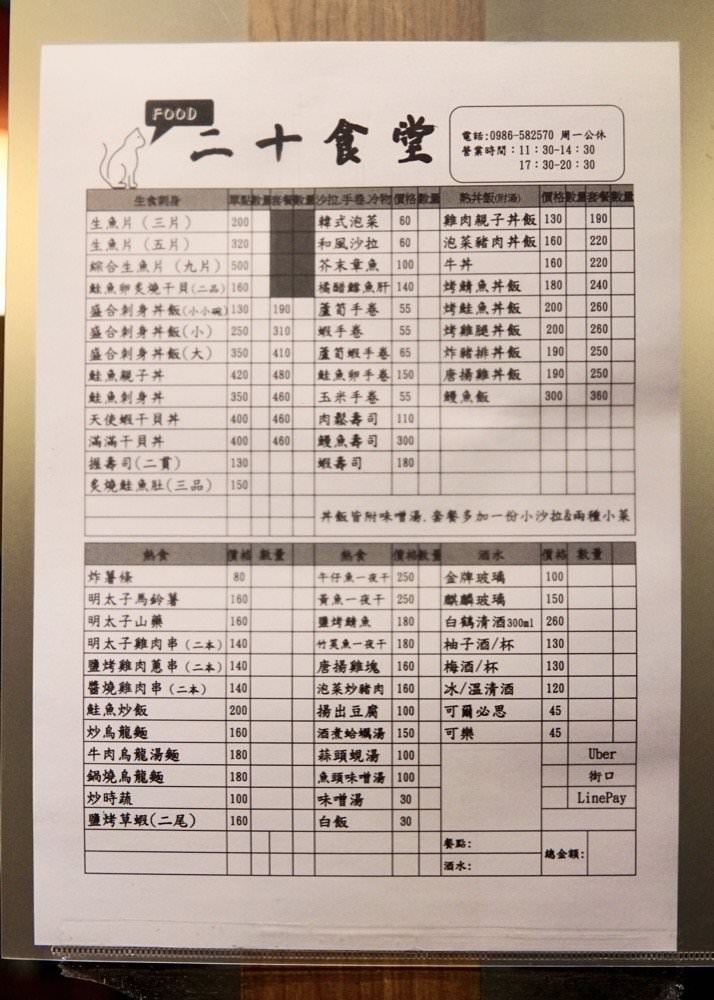 FOOD
二十食堂
電話:0986-582570 周一公休
營業時間：11：30-14：30
17：30-20：30
生食刺身 單點 數量 套餐 數量 沙拉.手卷.冷物 價格 數量 熱丼飯(附湯) 價格 數量 套餐 數量
生魚片（三片） 200 韓式泡菜 60 雞肉親子丼飯 130 190
生魚片（五片） 320 和風沙拉 60 泡菜豬肉丼飯 160 220
綜合生魚片（九片） 500 芥末章魚 100 牛丼 160 220
鮭魚卵炙燒干貝(二品) 160 橘醋鱈魚肝 140 烤鯖魚丼飯 180 240
盛合刺身丼飯(小小碗) 130 190 蘆筍手卷 55 烤鮭魚丼飯 200 260
盛合刺身丼飯(小) 250 310 蝦手卷 55 烤雞腿丼飯 200 260
盛合刺身丼飯(大) 350 410 蘆筍蝦手卷 65 炸豬排丼飯 190 250
鮭魚親子丼 420 480 鮭魚卵手卷 150 唐揚雞丼飯 190 250
鮭魚刺身丼 350 460 玉米手卷 55 鰻魚飯 300 360
天使蝦干貝丼 400 460 肉鬆壽司 110
滿滿干貝丼 400 460 鰻魚壽司 300
握壽司(二貫) 130 蝦壽司 180
炙燒鮭魚肚(三品) 150
丼飯皆附味噌湯.套餐多加一份小沙拉&兩種小菜
熱食 價格 數量 熱食 價格 數量 酒水 價格 數量
炸薯條 80 牛仔魚一夜干 250 金牌玻璃 100
明太子馬鈴薯 160 黃魚一夜干 250 麒麟玻璃 150
明太子山藥 160 鹽烤鯖魚 180 白鶴清酒300ml 260
明太子雞肉串（二本） 140 竹莢魚一夜干 180 柚子酒/杯 130
鹽烤雞肉蔥串（二本） 140 唐揚雞塊 160 梅酒/杯 130
醬燒雞肉串（二本） 140 泡菜炒豬肉 160 冰/溫清酒 120
鮭魚炒飯 200 揚出豆腐 100 可爾必思 45
炒烏龍麵 160 酒煮蛤蠣湯 150 可樂 45
牛肉烏龍湯麵 180 蒜頭蜆湯 100 Uber
鍋燒烏龍麵 180 魚頭味噌湯 100 街口
炒時蔬 100 味噌湯 30 LinePay
鹽烤草蝦(二尾) 160 白飯 30
餐點:
總金額:
酒水: